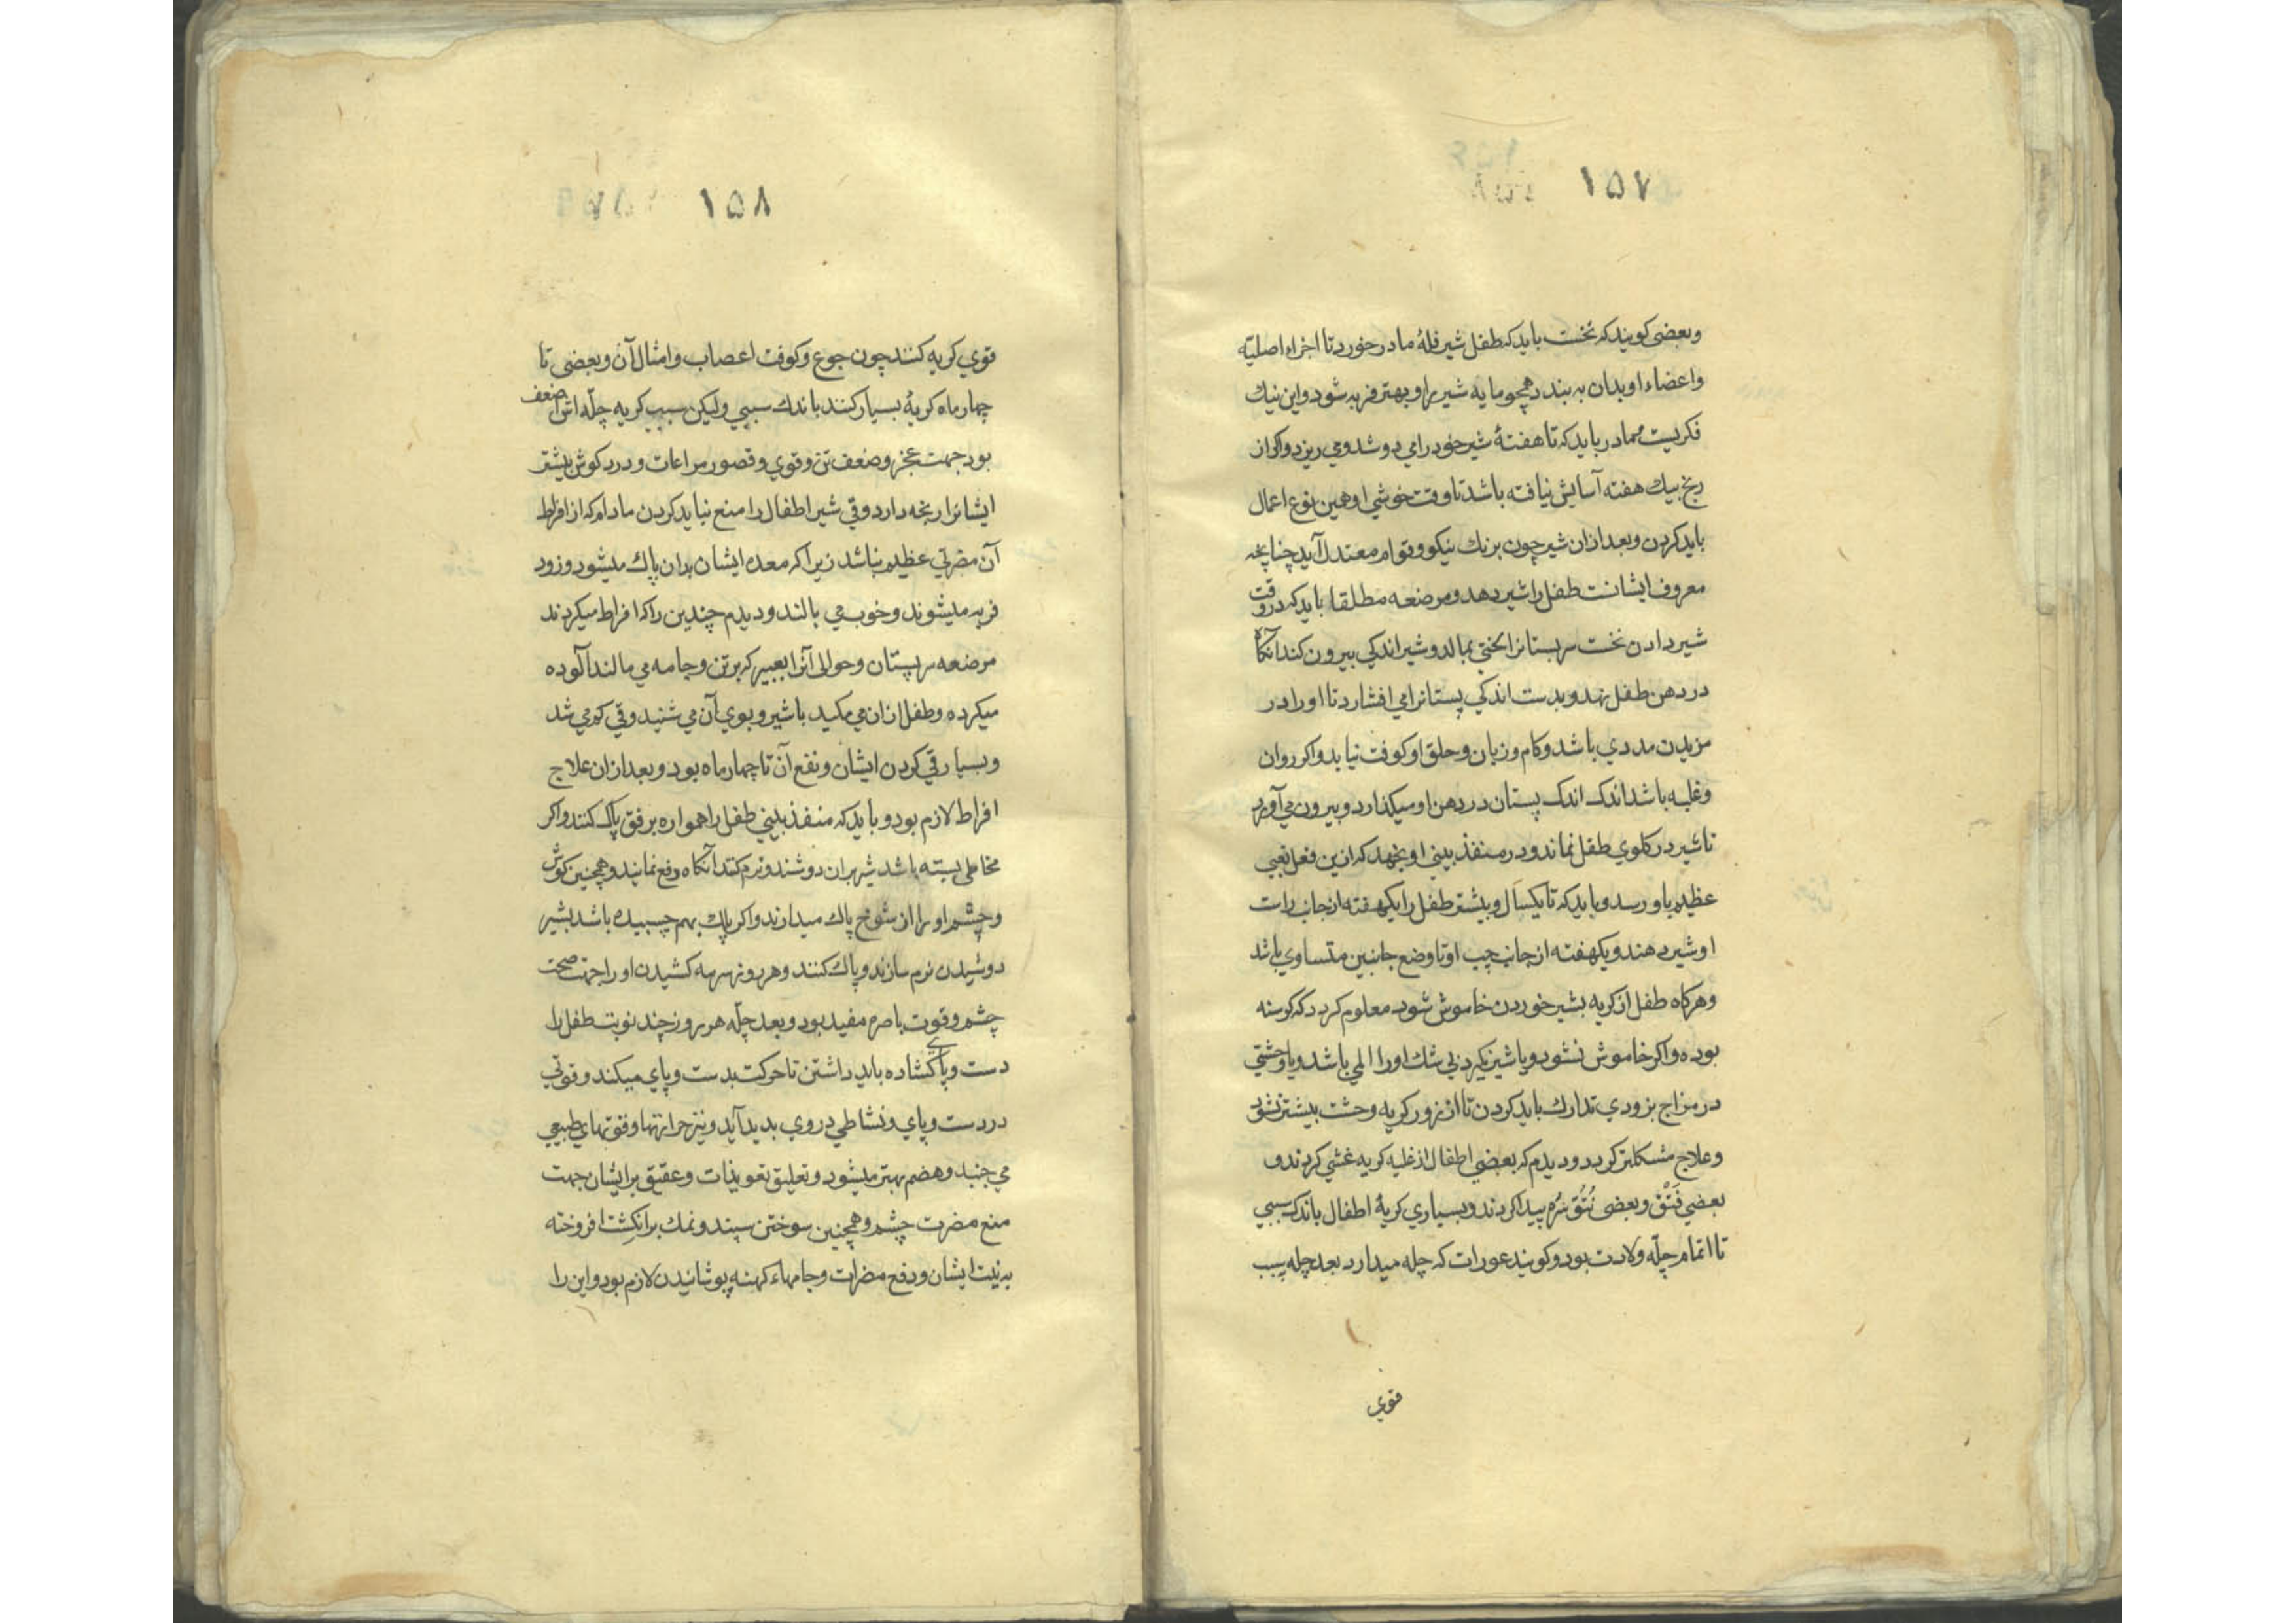 ١٥٧
وبعضی کویند که نخست باید که طفل شیر فلهٔ مادر خورد تا اجزاء اصلیّه
واعضاء او بدان به بندد همچو مایه شیر را و بهتر فربه شود و این نیك
فکریست مادر باید که تا هفتهٔ شیر خود را می دوشد و می ریزد واکر از
رنج بیك هفته آسایش نیافته باشد تا وقت خوشی او همین نوع اعمال
باید کردن و بعد از آن شیر چون برنك نیکو و قوام معتدل آید چنانچه
معروف ایشانست طفل را شیر دهد و مرضعه مطلقا باید که در وقت
شیر دادن نخست سر پستانرا لختی بمالد و شیر اندکی بیرون کند آنکاه
در دهن طفل نهد و بدست اندکی پستانرا می افشارد تا او را در
مزیدن مددی باشد و کام و زبان و حلق او کوفت نیابد واکر روان
و غلبه باشد اندک اندک پستان در دهن او میکذارد و بیرون می آورد
تا شیر در کلوی طفل نماند و در منفذ بینی او نجهد که ازین فعل تعبی
عظیم باو رسد و باید که تا یکسال و بیشتر طفل را یکهفته از جانب راست
او شیر دهند و یکهفته از جانب چپ او تا وضع جانبین متساوی باشد
وهرکاه طفل از کریه بشیر خوردن خاموش شود معلوم کردد که کرسنه
بوده واکر خاموش نشود و یا شیر نکیرد بی شك او را المی باشد و یا وحشتی
در مزاج بزودی تدارك باید کردن تا از زور کریه وحشت بیشتر نشود
وعلاج مشکلتر کردد و دیدم که بعضی اطفال از غلبه کریه غشی کردند و
بعضی فَتْق و بعضی نُتُق سُرّه پیدا کردند و بسیاری کریهٔ اطفال باندک سببی
تا اتمام چلّه ولادت بود و کویند عورات که چله میدارد بعد چله بسبب
قوي
١٥٨
قوي کریه کنند چون جوع و کوفت اعصاب و امثال آن و بعضی تا
چهار ماه کریهٔ بسیار کنند باندك سببي ولیکن سبب کریه چلّه اش از ضعف
بود جهت عجز و ضعف تن و قوي و قصور مراعات و درد کوش بیشتر
ایشانرا رنجه دارد و قی شیر اطفال را منع نباید کردن مادام که از افراط
آن مضرتي عظیم نباشد زیرا که معده ایشان بدان پاك میشود و زود
فربه میشوند و خوب می بالند و دیدم چندین را که افراط میکردند
مرضعه سر پستان و حوالی آنرا بعبیر که بر تن و جامه می مالند آلوده
میکرده و طفل از آن می مکید با شیر و بوي آن می شنید و قی کم می شد
و بسیار قی کردن ایشان و نفع آن تا چهار ماه بود و بعد از آن علاج
افراط لازم بود و باید که منفذ بینی طفل را همواره برفق پاک کنند و اکر
مخاطی بسته باشد شیر بر آن دوشند و نرم کنند آنکاه دفع نمایند و همچنین کوش
و چشم او را از شوخ پاك میدارند و اکر پلك بهم چسبیده باشد بشیر
دوشیدن نرم سازند و پاك کنند و هر روز سرمه کشیدن او را جهت صحت
چشم و قوت باصره مفید بود و بعد چلّه هر روز چند نوبت طفل را
دست و پای کشاده باید داشتن تا حرکت بدست و پای میکند و قوتي
در دست و پاي و نشاطی در وي پدید آید و نیز حرارتها و قوتهاي طبیعي
می جنبد و هضم بهتر میشود و تعلیق تعویذات و عقیق بر ایشان جهت
منع مضرت چشم و همچنین سوختن سپند و نمك بر انکشت افروخته
به نیت ایشان و دفع مضرات و جامهاء کهنه پوشانیدن لازم بود و این را